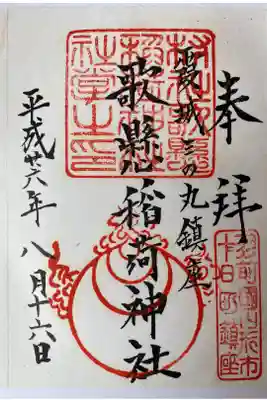 奉拝
霞城三の丸鎮座
歌懸稲荷神社
平成廿六年八月十六日
羽前國山形市
十日町鎮座